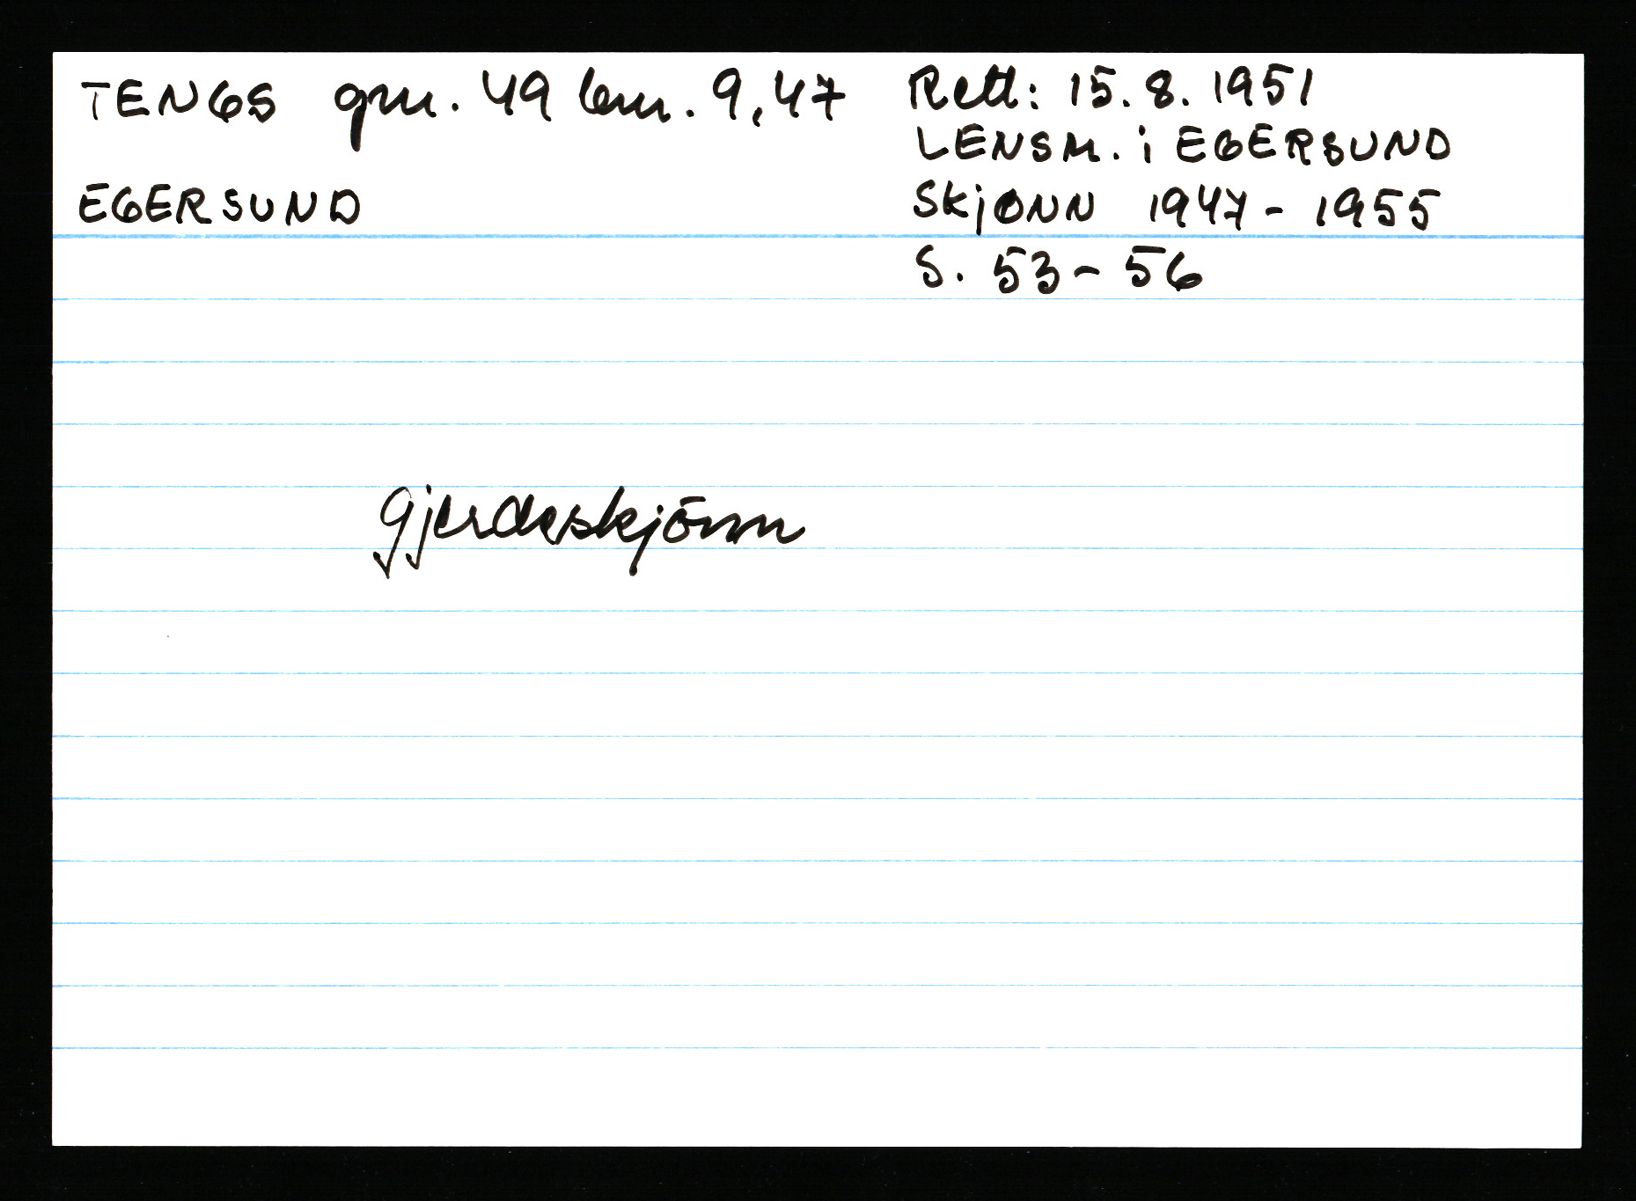 TENGS gnr. 49 bnr. 9,47
EGERSUND
Rett: 15.8.1951
LENSM. i EGERSUND
Skjønn 1947-1955
S. 53-56
gjerdeskjönn